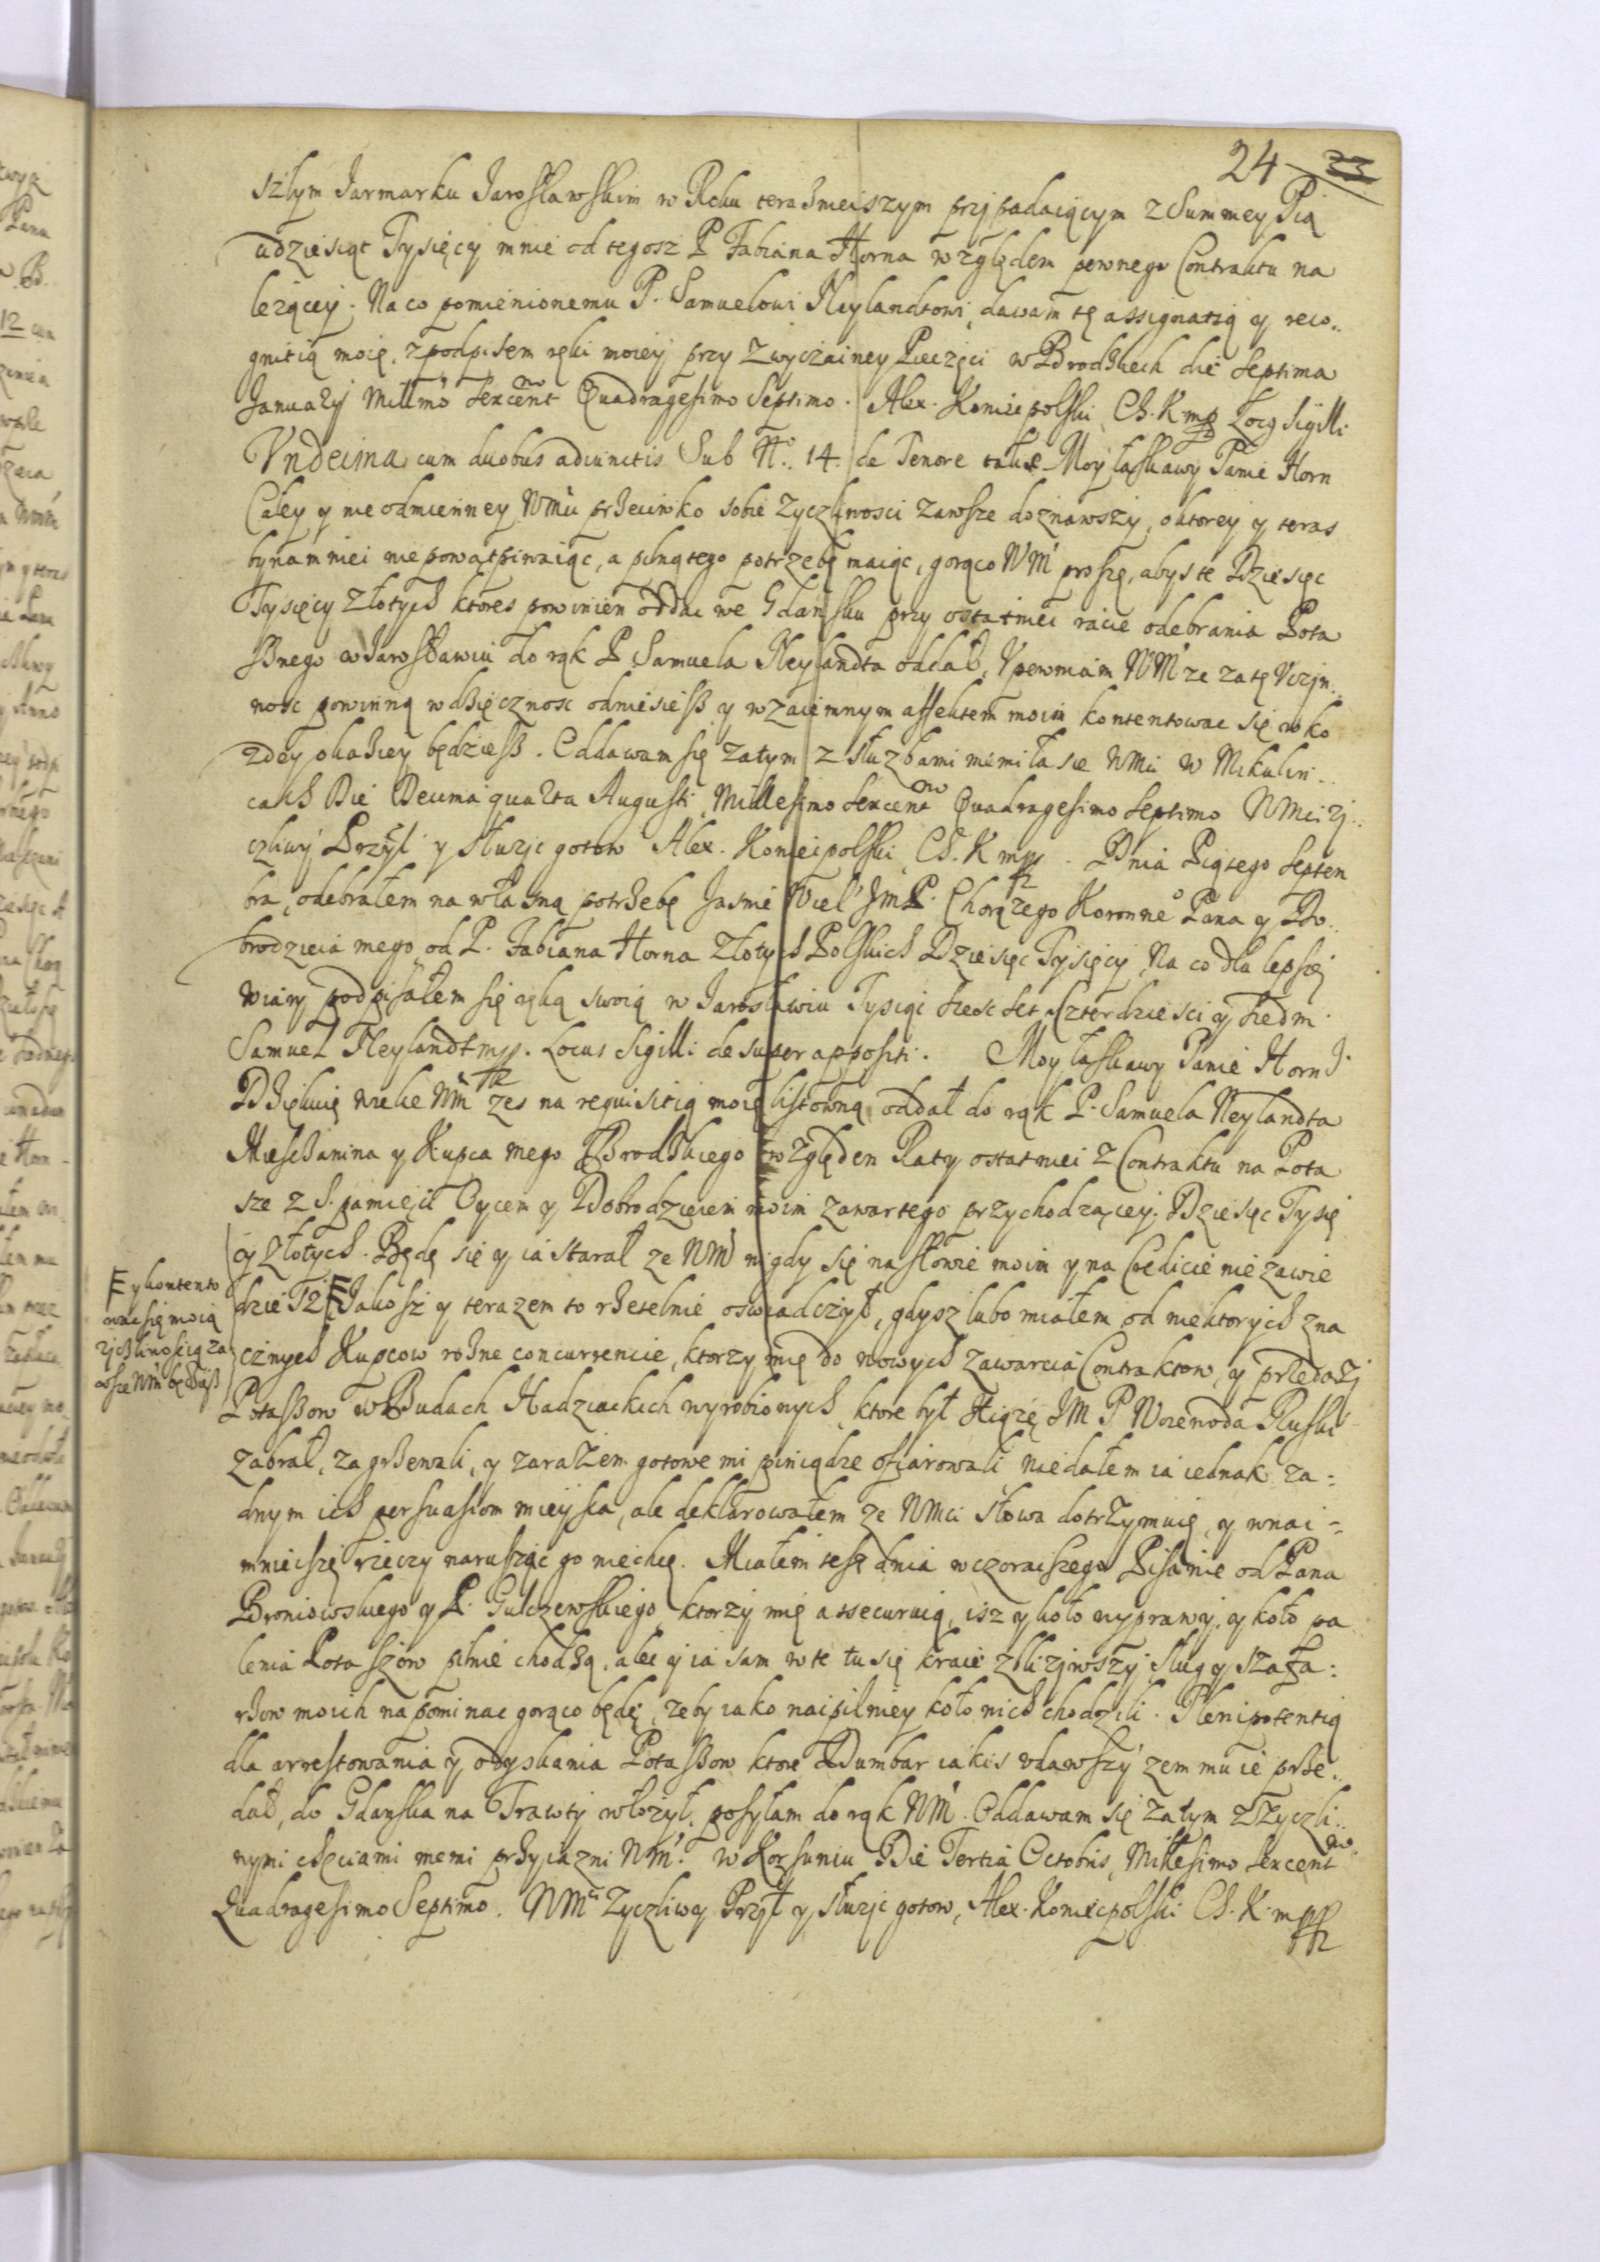 24 23
szłym Jarmarku Jarosławskim w Roku terazmeiszym przypadaiącym z Summey Pią
udziesiąt Tysięcy mnie od tegosz P Fabiana Horna względem pewnego Contraktu na
leżącey. Na co pomienionemu P. Samuelowi Neylandtowi, dawam tę assignatią y reco„
gnitią moię, z podpisem ręki moiey przy zwyczainey Pieczęci w Brodziech die Septima
January Millmo Sexcentno Quadragesimo Septimo. Alex. Koniecpolski Ch. K mp Locg Sigilli
Undecima cum duobus adiunctis Sub No. 14. de Tenore tali Moy łaskawy Panie Horn
Całey y nieodmienney WMci przeciwko sobie życzliwosci zawsze doznawszy, o ktorey y teras
bynamniei nie powątpiwaiąc, a pilną tego potrzebę maiąc, gorąco WM proszę, abys te Dziesięc
Tysięcy złotych ktores powinien oddac we Gdansku przy ostatniei racie odebrania Pota
sznego w Jarosławiu do rąk P. Samuela Neylandta oddał, Upewniam WM ze za tę Uczyn„
nosc powinną wdzięcznosc odniesiesz y wzaiemnym affektem moim kontentowac się w ko
zdey okaziey będziesz. Oddawam się zatym z słuzbami memi łasce WMci w Mikulin„
cach Die Decima quarta Augusti Millesimo Sexcentno Quadragesimo Septimo WMci zy„
czliwy Przyl y słuzyc gotow Alex. Koniecpolski Ch. K mpp. Dnia Piątego Septem
bra, odebrałem na własną potrzebę Jasnie Wiel JmP. Chorązego Koronneo Pana y Do„
brodzieia mego, od P. Fabiana Horna Złotych Polskich Dziesięc Tysięcy, Na co dla lepszey
wiary podpisałem się ręką swoią w Jarosławiu Tysiąc szesc set Czterdziesci y siedm.
Samuel Neylandt mpp. Locus Sigilli desuper appositi. Moy łaskawy Panie Horn
Dziękuię wielce WM zes na requisitią moię listowną oddał do rąk P. Samuela Neylandta
Miesczanina y Kupca mego Brodzkiego względem Raty ostatniei z Contraktu na Pota
sze z S. pamięci Oycem y Dobrodzieiem moim zawartego przychodzącey. Dziesięc Tysię
cy złotych. Będę się y ia starał ze WM nigdy się na słowie moim y na Credicie nie zawie
dziesz Jakosz y terazem to rzetelnie oswiadczył, gdysz lubo miałem od niektorych zna
y kontento
wac się moią
zyczliwoscią za
wsze WM będziesz
cznych Kupcow rozne concurrencie, ktorzy mię do nowych zawarcia Contraktow, y przedazy
Potaszow w Budach Hadziackich wyrobionych, ktore był Xiązę JM P Woiewoda Ruski
zabrał, zagrzewali, y zarazem gotowe mi piniądze ofiarowali nie dałem ia iednak za=
dnym ich persuasiom mieysca, ale deklarowałem ze WMci słowa dotrzymuię, y wnai=
mnieiszey rzeczy naruszyc go niechcę. Miałem tesz dnia wczoraiszego Pisanie od Pana
Broniowskiego y P. Gulczewskiego, ktorzy mię assecuruią, isz y koło wyprawy, y koło pa
lenia Potaszow pilnie chodzą, alec y ia sam w te tu się kraie zblizywszy sług y szafa=
rzow moich napominac gorąco będę, zeby iako naipilniey koło nich chodzili. Plenipotentią
dla arrestowania y odyskania Potaszow ktore Dumbar iakis udawszy zem mu ie prze„
dał, do Gdanska na Trawty włozył, posyłam do rąk WM. Oddawam się zatym z zyczli„
wymi chęciami memi przyiazni WM. w Korsuniu Die Tertia Octobris Millesimo Sexcentno
Quadragesimo Septimo. WMci Zyczliwy Przyl y słuzyc gotow, Alex. Koniecpolski Ch. K. mpp